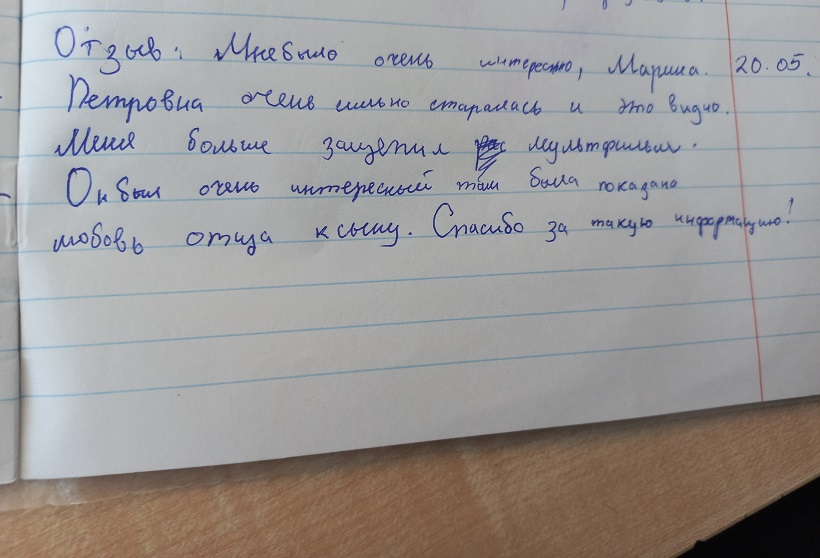 Отзыв: Мне было очень интересно, Марина. 20.05.
Петровна очень сильно старалась и это видно.
Меня больше зацепил мультфильм.
Он был очень интересный там была показана
любовь отца к сыну. Спасибо за такую информацию!